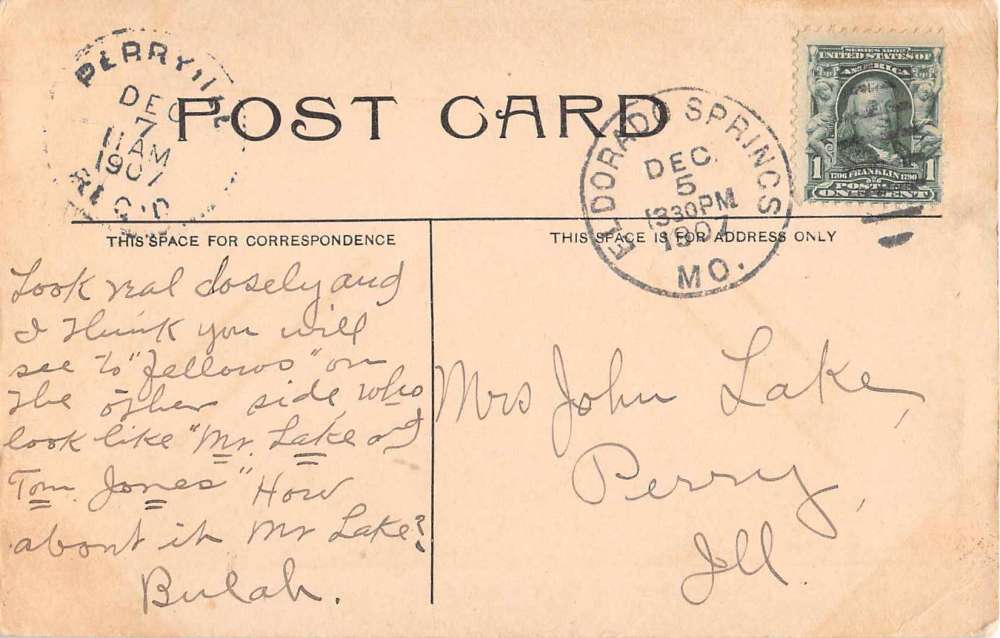 PERRY ILL.
DEC
7
11 AM
1907
REC'D
POST CARD
ELDORADO SPRINGS
DEC.
5
1330PM
1907
MO.
SERIES 1902
UNITED STATES OF
AMERICA
1 1
1706 FRANKLIN 1790
POSTAGE
ONE CENT
THIS SPACE FOR CORRESPONDENCE
Look real closely and
I think you will
see to "fellows" on
the other side, who
look like "Mr. Lake and
Tom Jones" How
about it Mr Lake?
Bulah.
THIS SPACE IS FOR ADDRESS ONLY
Mrs John Lake,
Perry,
Ill.